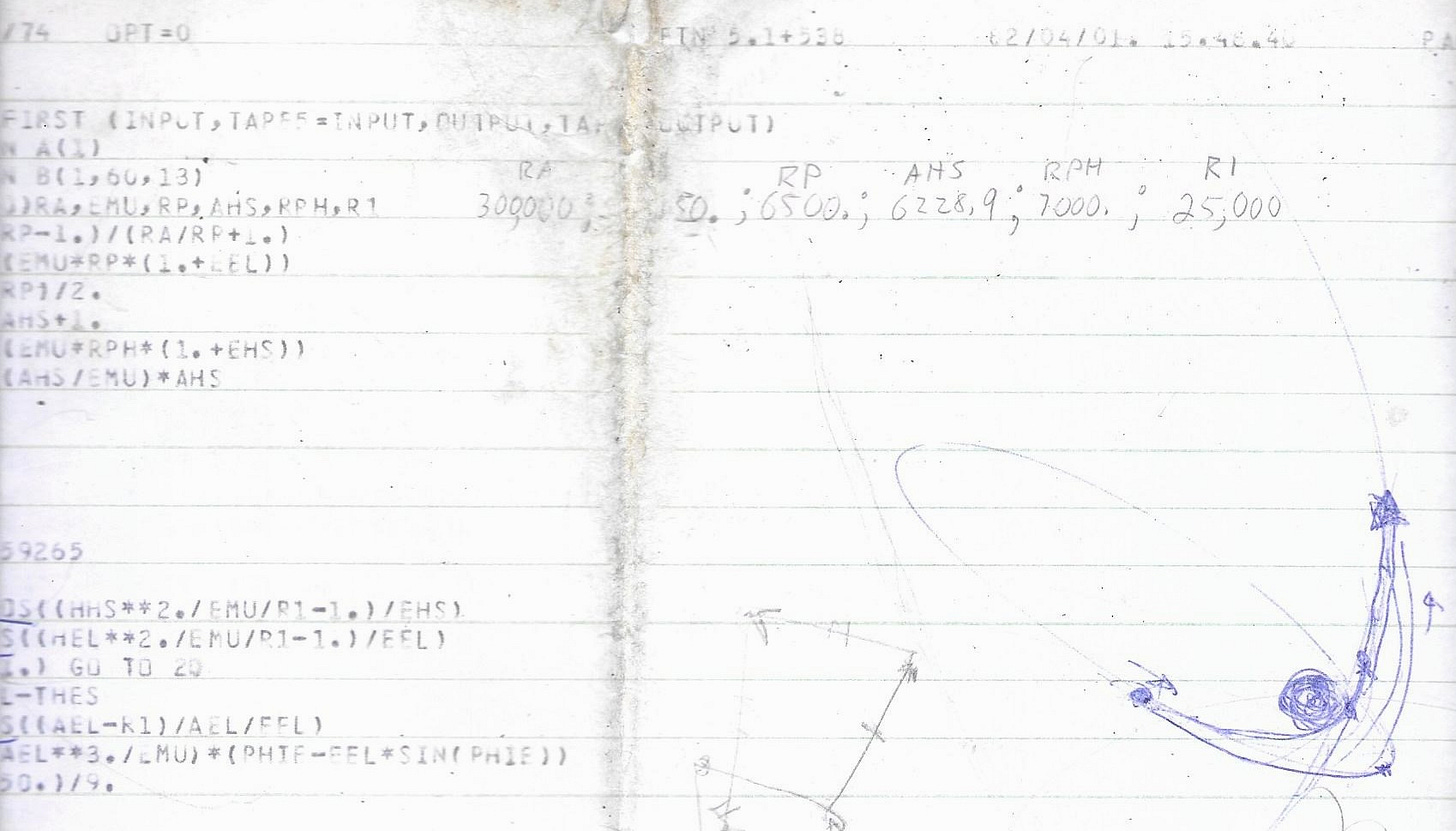 /74 OPT=0 FTN 5.1+538 82/04/01. 15.48.40 PA
FIRST (INPUT,TAPE5=INPUT,OUTPUT,TAP OUTPUT)
N A(1)
N B(1,60,13) RA RP AHS RPH R1
)RA,EMU,RP,AHS,RPH,R1 300000 ; 50. ; 6500. ; 6228.9 ; 7000. ; 25,000
RP-1.)/(RA/RP+1.)
(EMU*RP*(1.+EEL))
RP)/2.
AHS+1.
(EMU*RPH*(1.+EHS))
(AHS/EMU)*AHS
59265
OS((HHS**2./EMU/R1-1.)/EHS)
S((HEL**2./EMU/R1-1.)/EEL)
1.) GO TO 20
L-THES
S((AEL-R1)/AEL/EEL)
AEL**3./EMU)*(PHIE-EEL*SIN(PHIE))
50.)/9.